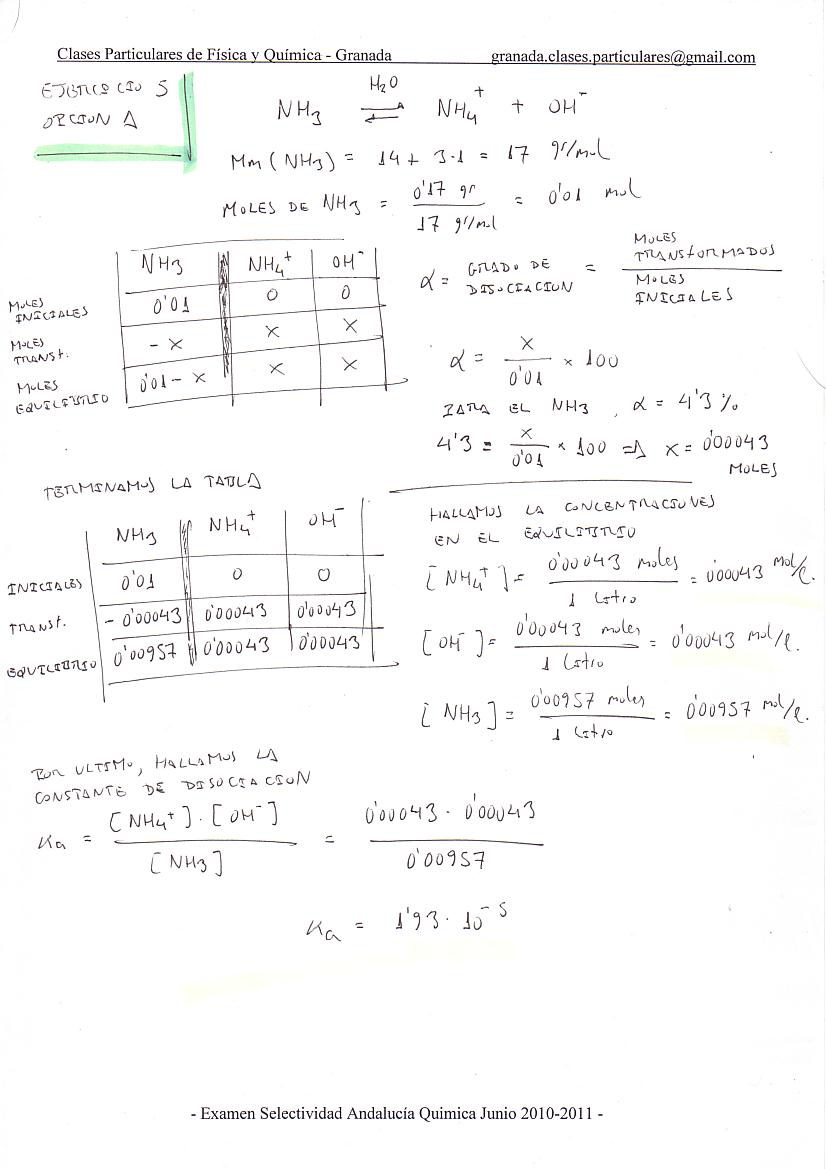 Clases Particulares de Física y Química - Granada granada.clases.particulares@gmail.com
EJERCICIO 5
OPCION A
NH3 ⇌ NH4+ + OH-
H2O
Mm (NH3) = 14 + 3·1 = 17 gr/mol
MOLES DE NH3 = 0'17 gr / 17 gr/mol = 0'01 mol
NH3 NH4+ OH-
MOLES INICIALES 0'01 0 0
MOLES TRANSF. - x x x
MOLES EQUILIBRIO 0'01 - x x x
α = GRADO DE DISOCIACION = MOLES TRANSFORMADOS / MOLES INICIALES
α = x / 0'01 × 100
PARA EL NH3, α = 4'3 %
4'3 = x / 0'01 × 100 => x = 0'00043 MOLES
TERMINAMOS LA TABLA
NH3 NH4+ OH-
INICIALES 0'01 0 0
TRANSF. - 0'00043 0'00043 0'00043
EQUILIBRIO 0'00957 0'00043 0'00043
HALLAMOS LA CONCENTRACIONES
EN EL EQUILIBRIO
[NH4+] = 0'00043 moles / 1 litro = 0'00043 mol/l.
[OH-] = 0'00043 moles / 1 litro = 0'00043 mol/l.
[NH3] = 0'00957 moles / 1 litro = 0'00957 mol/l.
POR ULTIMO, HALLAMOS LA
CONSTANTE DE DISOCIACION
Ka = [NH4+]·[OH-] / [NH3] = 0'00043 · 0'00043 / 0'00957
Ka = 1'93 · 10-5
- Examen Selectividad Andalucía Quimica Junio 2010-2011 -